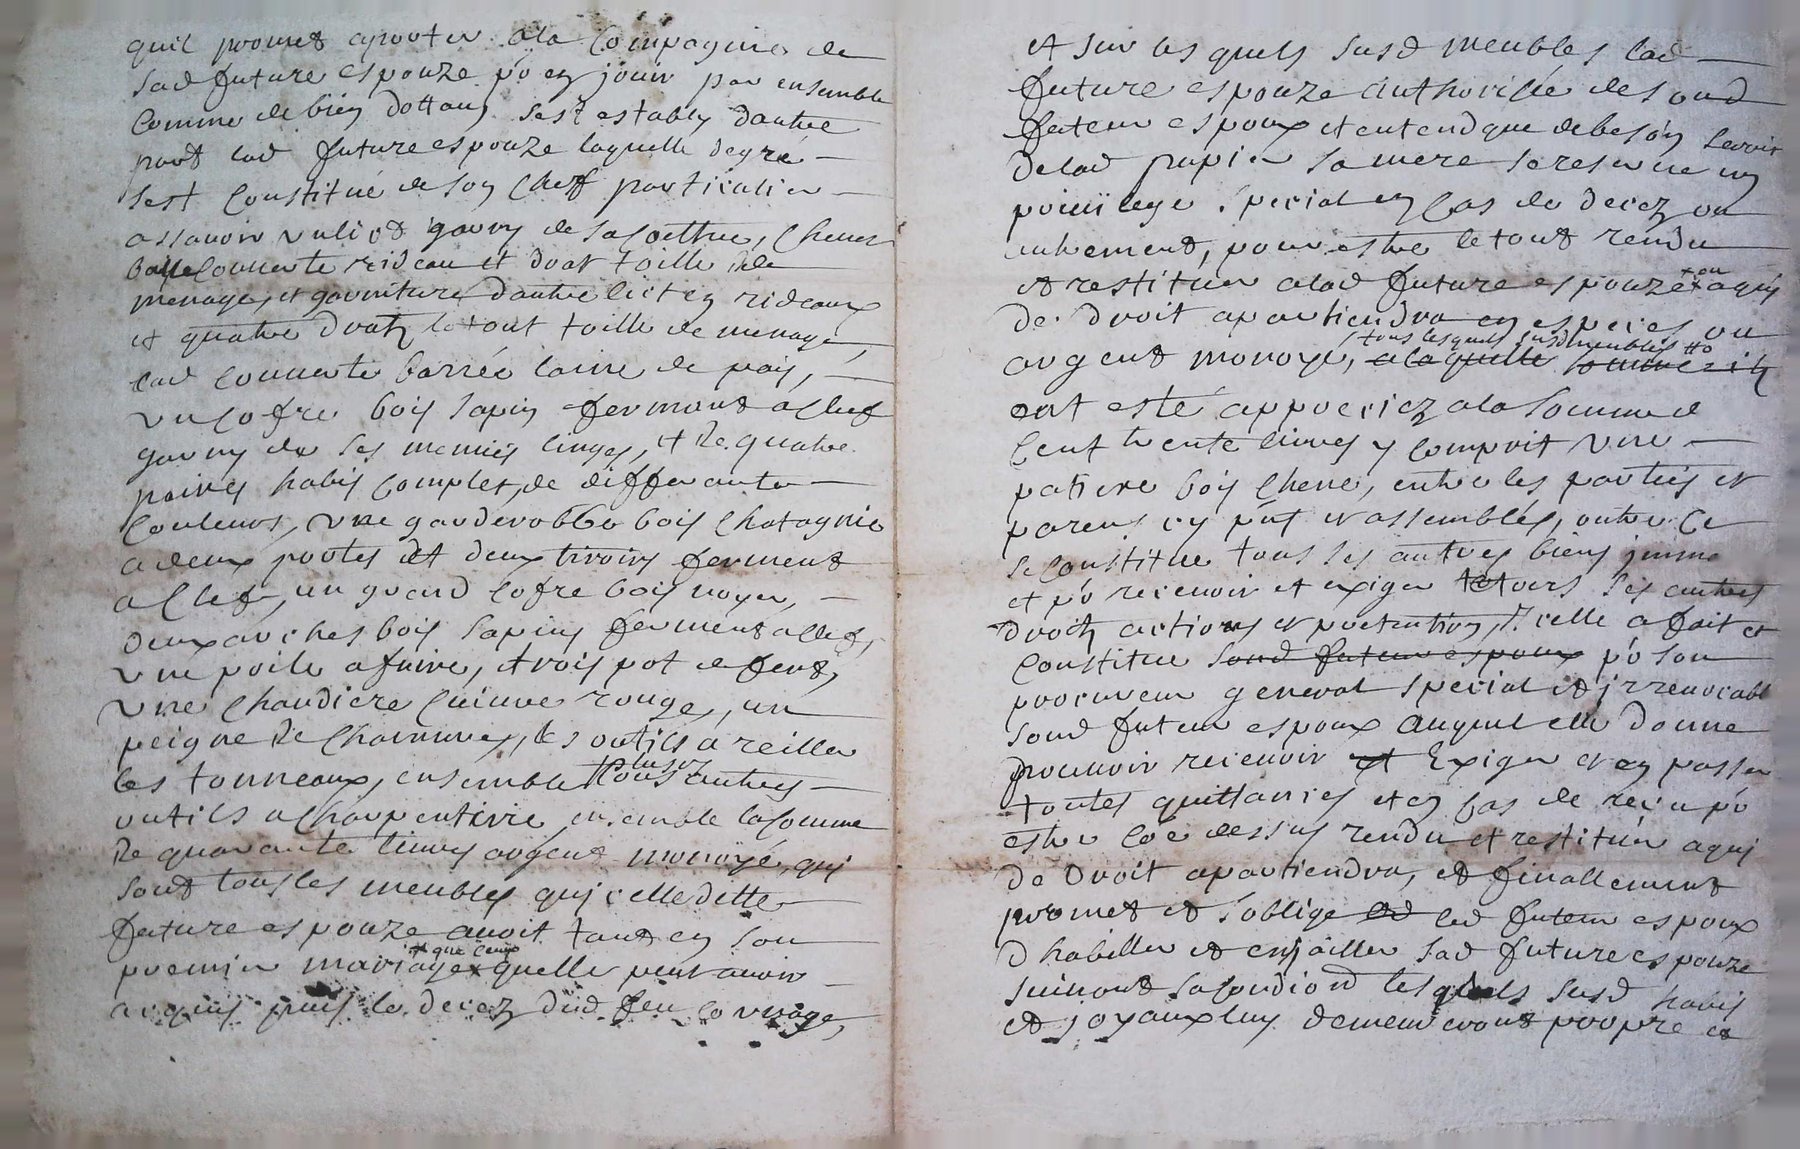 quil promet aporter a la Compagnie de
sad future espouze po en jouir par ensemble
Comme de bien dottaux sest estably dautre
part lad future espouze laquelle de gré
sest Constitué de son Chef particulier
assavoir un lict garny de sa Coettre, Chevet
balle Couverte rideau et drat toille de
menage, et garniture dautre lict en rideaux
et quatre dratz le tout toille de menage,
lad couverte barrée laine de païs,
un cofre bois sapin fermant a clef
garny de ses menus linges, et de quatre
paires habis Complet, de differante
Couleurs, une garderobbe bois Chatagnié
a deux portes et deux tiroirs ferment
a Clef, un grand Cofre bois noyer,
deux arches bois sapins ferment a clef,
une poile a frire, trois pot de fert,
une Chaudiere Cuivre rouge, un
peigne de Chamure, les outils a reiller
les tonneaux, ensemble tous autres
outils a Charpentirie ensemble la somme
de quarante livres argent monoyé, qui
sont tous les meubles qu'icelle ditte
future espouze avoit tant en son
+ que ceux
premier mariage x quelle peut avoir
acquis puis le decez dud feu
et sur les quels susd meubles lad
future espouze authorisée de soud
futeur espoux et entend que de besoin seroit
de lad papier sa mere se reserve un
privilege special en Cas de decez ou
autrement, pour estre le tout rendu
+ ou
et restituer a lad future espouze x a qui
de droit apartiendra en especes ou
+ tous lesquels susd meubles
argent monoyé, a laquelle somme ilz
ont esté appreciez a la somme de
Cent trente livres y Comprit une
patiere bois Chene, entre les parties et
parens icy pnt et assemblés, outre Ce
se Constitue tous ses autres biens
et po recevoir et exiger tous ses autres
droitz actions et pretentions, Icelle a fait et
Constitue soud futeur espoux po son
procureur general special et irrevocable
soud futeur espoux auquel elle donne
pouvoir recevoir et Exiger et en passer
toutes quittances et en Cas de reçu po
estre Coe dessus rendu et restituer a qui
de droit apartiendra, et finallement
promet et s'oblige led futeur espoux
d'habiller et enjoailler sad future espouze
suivant sa condiond lesquels susd habis
et joyaux luy demeureront propre et